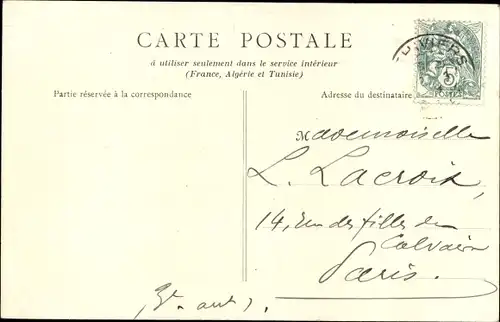 CARTE POSTALE
à utiliser seulement dans le service intérieur
(France, Algérie et Tunisie)
Partie réservée à la correspondance
Adresse du destinataire
Mademoiselle
L. Lacroix,
14, Rue des filles du
Calvaire
Paris.
5
POSTES